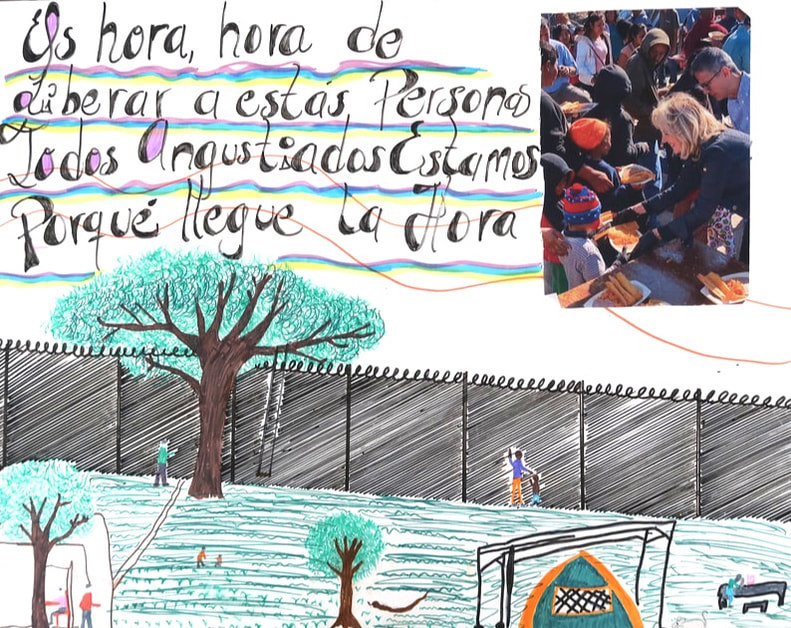 Es hora, hora de
Liberar a estás Personas
Todos Angustiados Estamos
Porqué llegue la Hora